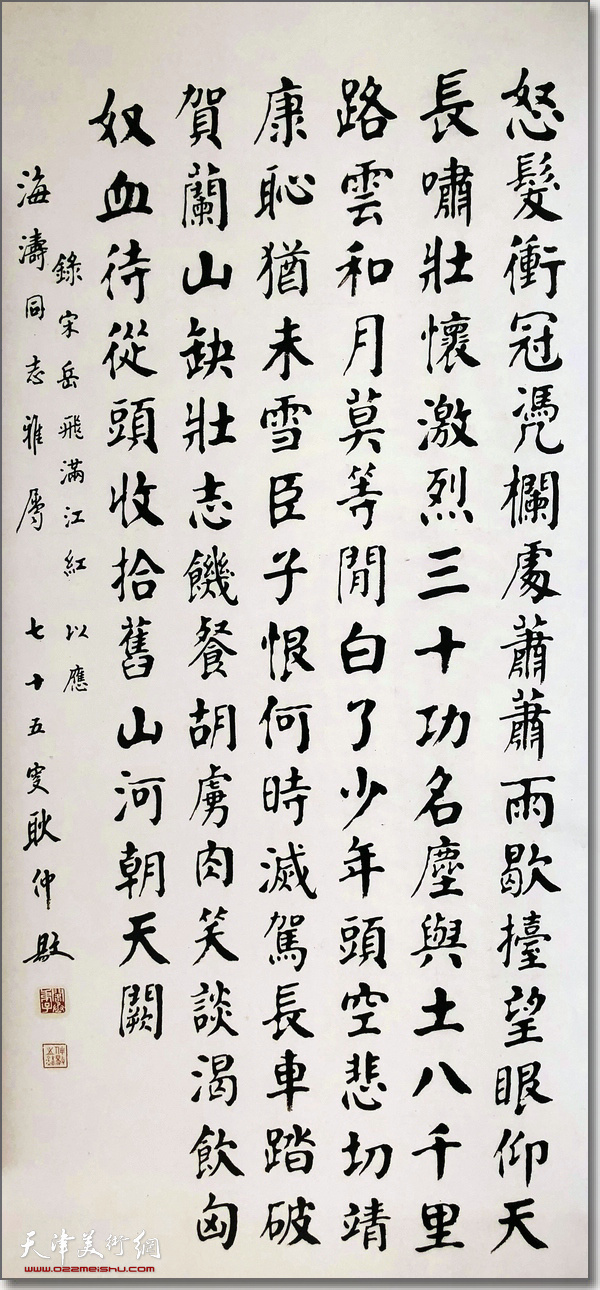 怒髮衝冠憑欄處蕭蕭雨歇擡望眼仰天
長嘯壯懷激烈三十功名塵與土八千里
路雲和月莫等閒白了少年頭空悲切靖
康恥猶未雪臣子恨何時滅駕長車踏破
賀蘭山缺壯志饑餐胡虜肉笑談渴飲匈
奴血待從頭收拾舊山河朝天闕
錄宋岳飛滿江紅 以應
海濤同志雅屬 七十五叟耿仲敭
天津美術網
www.022meishu.com